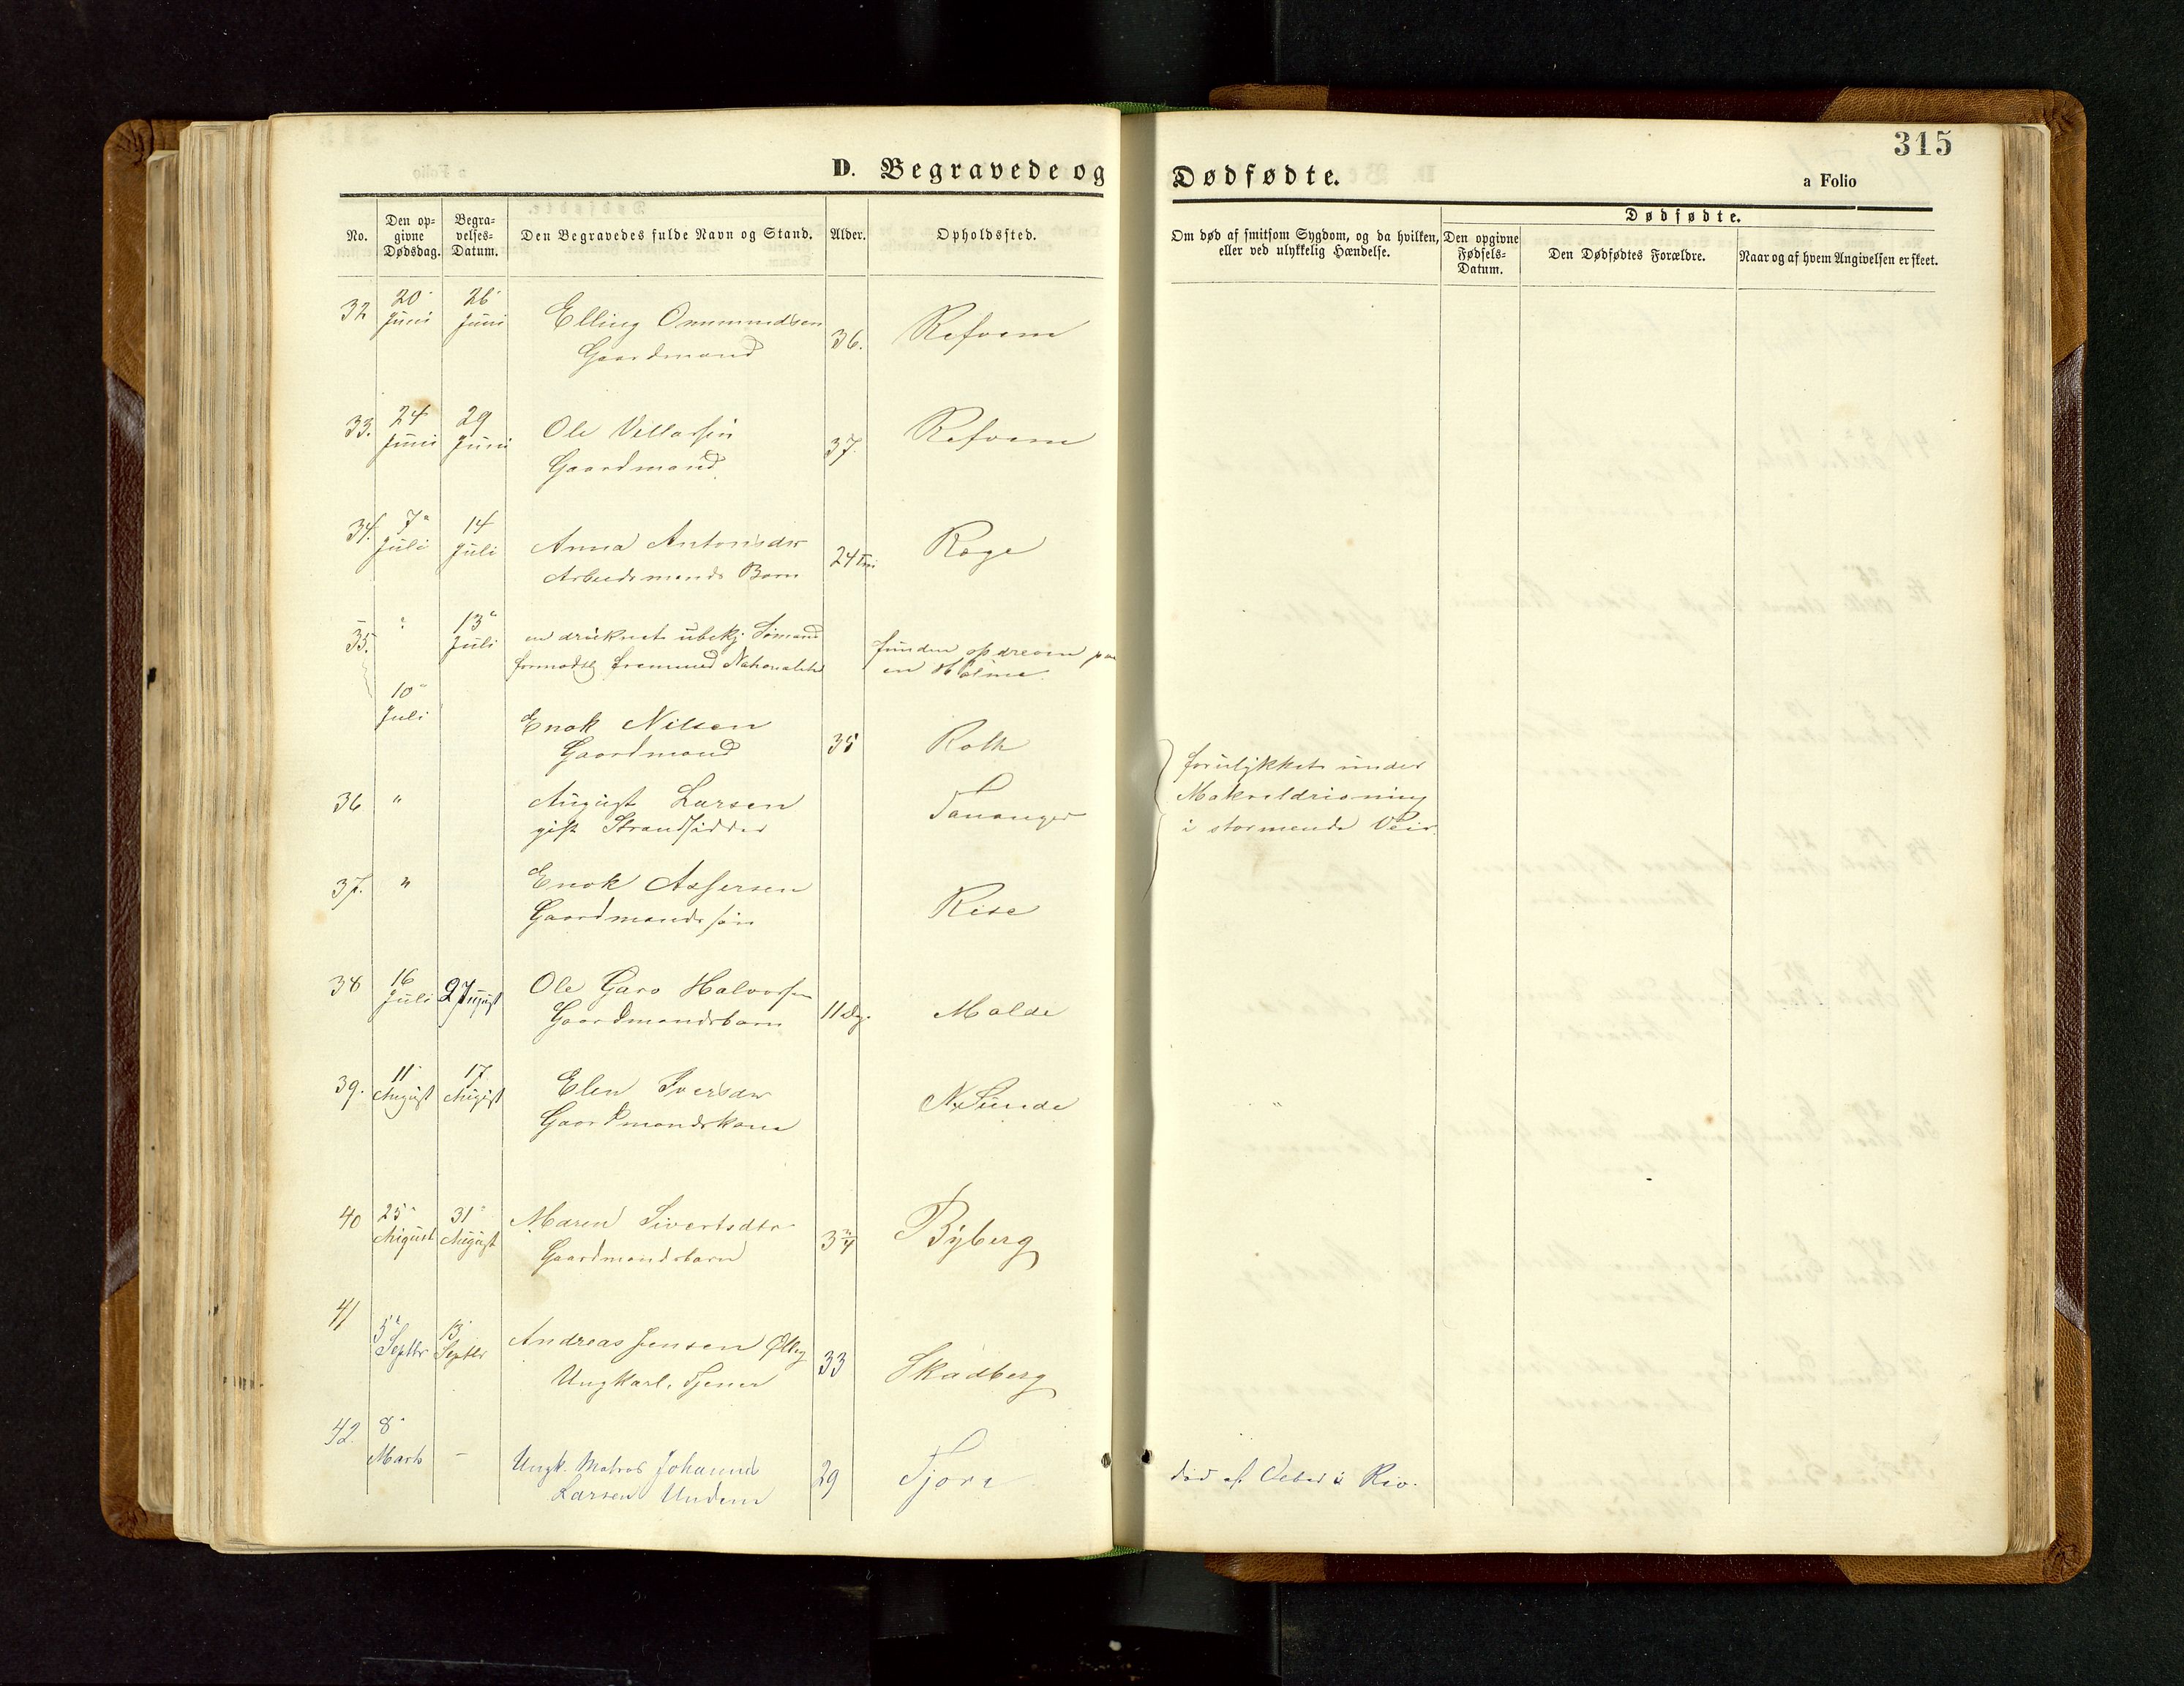 315
D. Begravede og Dødfødte.
a Folio
No.
Den op-
givne
Dødsdag.
Begra-
velses-
Datum.
Den Begravedes fulde Navn og Stand.
Alder.
Opholdssted.
Om død af smitsom Sygdom, og da hvilken,
eller ved ulykkelig Hændelse.
Dødfødte.
Den opgivne
Fødsels-
Datum.
Den Dødfødtes Forældre.
Naar og af hvem Angivelsen er skeet.
32 20 Juni 26 Juni Elling Ommundsen
Gaardmand 36. Refsem
33. 24 Juni 29 Juni Ole Villarsen
Gaardmand 37. Refsem
34. 7 Juli 14 Juli Anna Antonsdtr
Arbeidsmands Barn 24 Tim Rage
35. " 13 Juli en druknet ubekj Sømand
formodtlg fremmed Nationalitet
funden opdreven paa
en Holme.
10 Juli Enok Nilsen
Gaardmand 35 Roth
36 " August Larsen
gift Strandsidder Tananger
forulykket under
Makreldrivning
i stormende Veir.
37. " Enok Assersen
Gaardmandssøn Risa
38 16 Juli 27 August Ole Garo Halvorsen
Gaardmandsbarn 11 Dg. Malde
39. 11 August 17 August Elen Iversdtr
Gaardmandskone N. Sunde
40 25 August 31 August Maren Sivertsdtr
Gaardmandsbarn 3 3/4 Byberg
41 5 Septbr 13 Septbr Andreas Jensen Ølbg
Ungkarl, Tjener 33 Skadberg
42. 8 Marts - Ungk. Matros Johannes
Larsen Undem 29 Tjora
død af Feber i Rio.